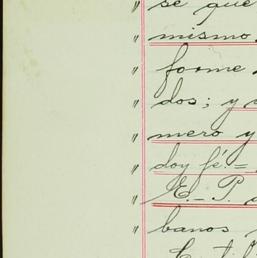 " se que
" mismo.
" forme
" dos; y
" mero y
" doy fé.=
" E.- P.
" banos